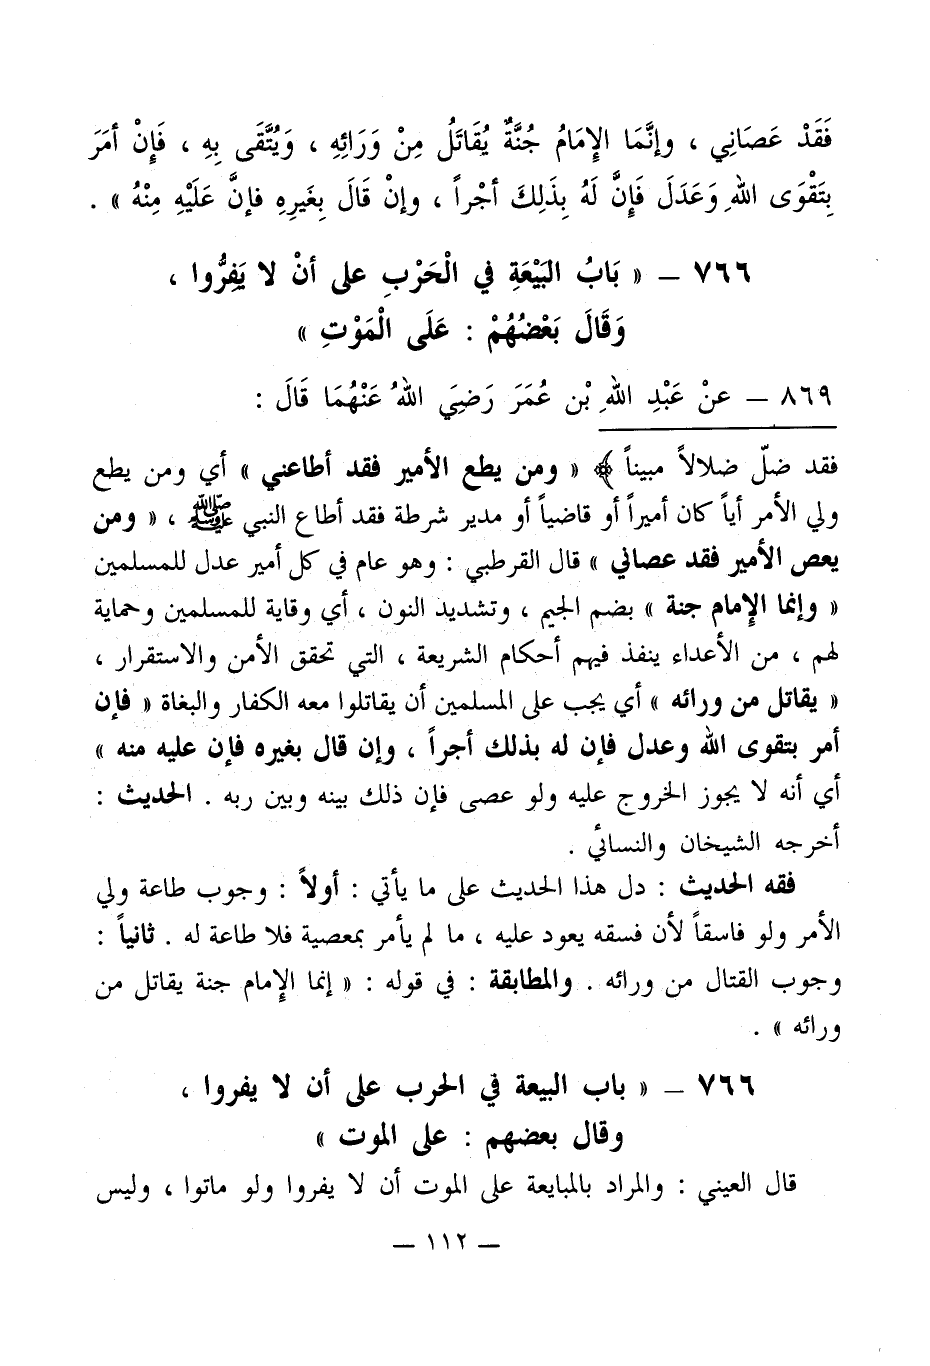 فَقَدْ عَصَانِي ، وإنَّمَا الإِمَامُ جُنَّةٌ يُقَاتَلُ مِنْ وَرَائِهِ ، وَيُتَّقَى بِهِ ، فَإِنْ أمَرَ
بِتَقْوَى اللهِ وَعَدَلَ فَإِنَّ لَهُ بِذَلِكَ أجْراً ، وإنْ قَالَ بِغَيرِهِ فإنَّ عَلَيْهِ مِنْهُ » .
٧٦٦ – « بَابُ البَيْعَةِ في الْحَرْبِ على أنْ لا يَفِرُّوا ،
وَقَالَ بَعْضُهُمْ : عَلَى الْمَوْتِ »
٨٦٩ – عنْ عَبْدِ اللهِ بْن عُمَرَ رَضِيَ اللهُ عَنْهُمَا قَالَ :
فقد ضلّ ضلالاً مبيناً ﴾ « ومن يطع الأمير فقد أطاعني » أي ومن يطع
ولي الأمر أياً كان أميراً أو قاضياً أو مدير شرطة فقد أطاع النبي ﷺ ، « ومن
يعص الأمير فقد عصاني » قال القرطبي : وهو عام في كل أمير عدل للمسلمين
« وإنما الإمام جنة » بضم الجيم ، وتشديد النون ، أي وقاية للمسلمين وحماية
لهم ، من الأعداء ينفذ فيهم أحكام الشريعة ، التي تحقق الأمن والاستقرار ،
« يقاتل من ورائه » أي يجب على المسلمين أن يقاتلوا معه الكفار والبغاة « فإن
أمر بتقوى الله وعدل فإن له بذلك أجراً ، وإن قال بغيره فإن عليه منه »
أي أنه لا يجوز الخروج عليه ولو عصى فإن ذلك بينه وبين ربه . الحديث :
أخرجه الشيخان والنسائي .
فقه الحديث : دل هذا الحديث على ما يأتي : أولاً : وجوب طاعة ولي
الأمر ولو فاسقاً لأن فسقه يعود عليه ، ما لم يأمر بمعصية فلا طاعة له . ثانياً :
وجوب القتال من ورائه . والمطابقة : في قوله : « إنما الإمام جنة يقاتل من
ورائه » .
٧٦٦ – « باب البيعة في الحرب على أن لا يفروا ،
وقال بعضهم : على الموت »
قال العيني : والمراد بالمبايعة على الموت أن لا يفروا ولو ماتوا ، وليس
– ١١٢ –